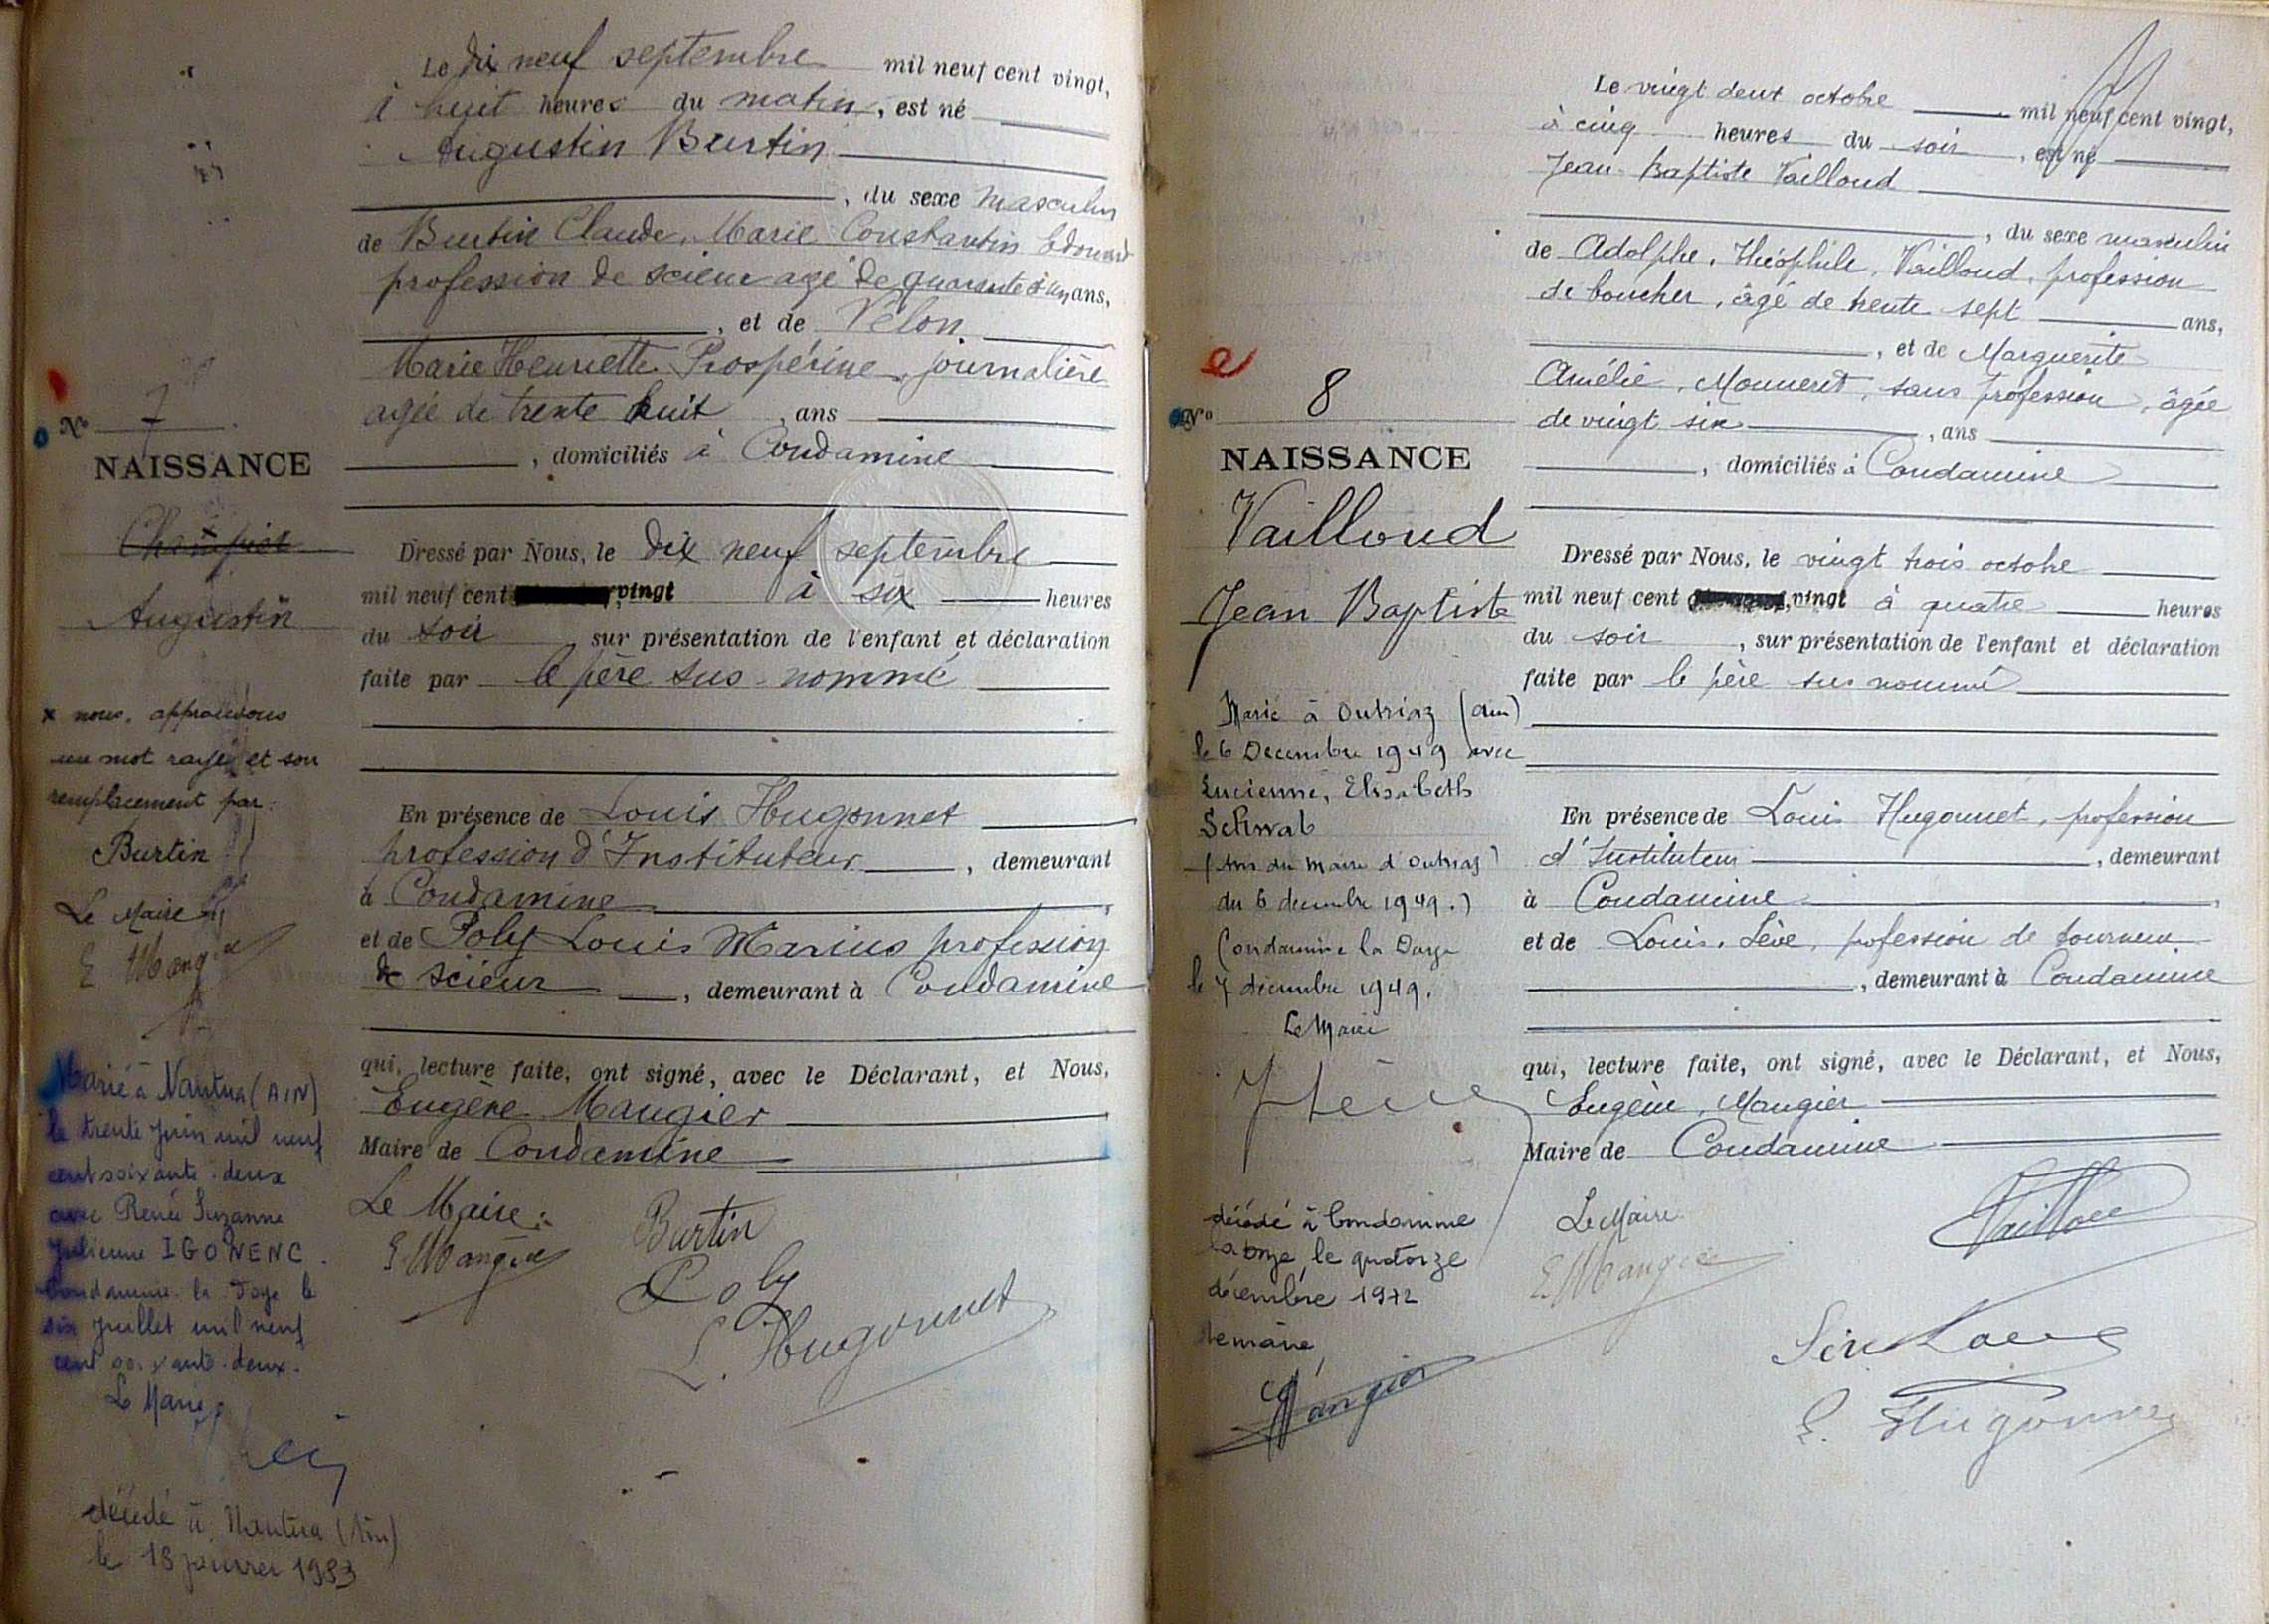 Le dix neuf septembre mil neuf cent vingt,
à huit heures du matin, est né
Augustin Burtin
, du sexe masculin
de Burtin Claude, Marie Constantin Edouard
profession de scieur agé de quarante et un ans,
, et de Velon
Marie Henriette Prospérine, journalière
agée de trente huit, ans
, domiciliés à Condamine
Dressé par Nous, le dix neuf septembre
mil neuf cent vingt à six heures
du soir, sur présentation de l'enfant et déclaration
faite par le père sus-nommé
En présence de Louis Hugonnet
profession d'Instituteur, demeurant
à Condamine
et de Poly Louis Marius profession
de scieur, demeurant à Condamine
qui, lecture faite, ont signé, avec le Déclarant, et Nous,
Eugène Maugier
Maire de Condamine
Le Maire:
E Maugier
Burtin
Poly
L. Hugonnet
No 7
NAISSANCE
Augustin
x nous, approuvons
un mot rayé et son
remplacement par:
Burtin
Le Maire
E Maugier
Marié à Nantua (AIN)
le trente juin mil neuf
cent soixante-deux
avec Renée Suzanne
Julienne IGONENC.
Condamine la Doye le
six juillet mil neuf
cent soixante-deux.
Le Maire
décédé à Nantua (Ain)
le 18 janvier 1983
Le vingt deux octobre mil neuf cent vingt,
à cinq heures du soir, est né
Jean-Baptiste Vailloud
, du sexe masculin
de Adolphe, Théophile, Vailloud, profession
de boucher, âgé de trente sept ans,
, et de Marguerite
Amélie, Monneret, sans profession, âgée
de vingt six, ans
, domiciliés à Condamine
Dressé par Nous, le vingt trois octobre
mil neuf cent vingt à quatre heures
du soir, sur présentation de l'enfant et déclaration
faite par le père sus nommé
En présence de Louis Hugonnet, profession
d'Instituteur, demeurant
à Condamine
et de Louis, Sève, profession de tourneur
, demeurant à Condamine
qui, lecture faite, ont signé, avec le Déclarant, et Nous,
Eugène, Maugier
Maire de Condamine
Le Maire
E Maugier
Sève Louis
L. Hugonnet
No 8
NAISSANCE
Vailloud
Jean Baptiste
Marié à Outriaz (Ain)
le 6 Decembre 1949 avec
Lucienne, Elisabeth
Schwab
(Avis du Maire d'Outriaz
du 6 decembre 1949.)
Condamine la Doye
le 7 décembre 1949.
Le Maire
décédé à Condamine
la Doye le quatorze
décembre 1972
le maire
Maugier